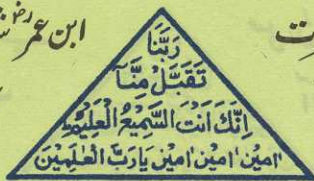 ابن عمر رضؓ
رَبَّنَا
تَقَبَّلْ مِنَّا
اِنَّكَ اَنْتَ السَّمِیْعُ الْعَلِیْمُ
اٰمین اٰمین اٰمین یَارَبَّ الْعٰلَمِیْنَ